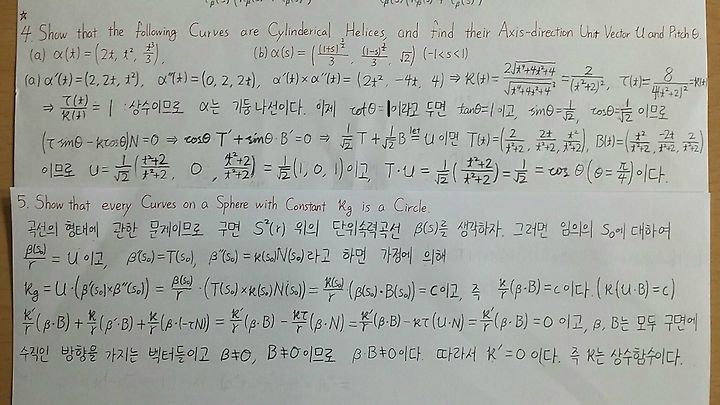 ★
4. Show that the following Curves are Cylinderical Helices, and find their Axis-direction Unit Vector U and Pitch θ.
(a) α(t) = (2t, t², t³/3), (b) α(s) = ((1+s)^(3/2)/3, (1-s)^(3/2)/3, s/√2) (-1<s<1)
(a) α'(t) = (2, 2t, t²), α''(t) = (0, 2, 2t), α'(t)×α''(t) = (2t², -4t, 4) ⇒ κ(t) = 2√(t⁴+4t²+4)/√(t⁴+4t²+4)³ = 2/(t²+2)², τ(t) = 8/4(t²+2)² = κ(t)
⇒ τ(t)/κ(t) = 1 : 상수이므로 α는 기둥나선이다. 이제 cotθ = 1 이라고 두면 tanθ = 1 이고, sinθ = 1/√2, cosθ = 1/√2 이므로
(τ sinθ - κ cosθ)N = 0 ⇒ cosθ T' + sinθ·B' = 0 ⇒ 1/√2 T + 1/√2 B let= U 이면 T(t) = (2/t²+2, 2t/t²+2, t²/t²+2), B(t) = (t²/t²+2, -2t/t²+2, 2/t²+2)
이므로 U = 1/√2 (t²+2/t²+2, 0, t²+2/t²+2) = 1/√2 (1, 0, 1) 이고, T·U = 1/√2 (t²+2/t²+2) = 1/√2 = cos θ (θ = π/4) 이다.
5. Show that every Curves on a Sphere with Constant κg is a Circle.
곡선의 형태에 관한 문제이므로 구면 S²(r) 위의 단위속력곡선 β(s)를 생각하자. 그러면 임의의 s₀에 대하여
β(s₀)/r = U 이고, β'(s₀) = T(s₀), β''(s₀) = κ(s₀)N(s₀) 라고 하면 가정에 의해
κg = U·(β'(s₀)×β''(s₀)) = β(s₀)/r·(T(s₀)×κ(s₀)N(s₀)) = κ(s₀)/r·(β(s₀)·B(s₀)) = c 이고, 즉 κ/r(β·B) = c 이다. (κ(U·B) = c)
κ'/r(β·B) + κ/r(β'·B) + κ/r(β·(-τN)) = κ'/r(β·B) - κτ/r(β·N) = κ'/r(β·B) - κτ(U·N) = κ'/r(β·B) = 0 이고, β, B는 모두 구면에
수직인 방향을 가지는 벡터들이고 β≠0, B≠0 이므로 β·B≠0 이다. 따라서 κ' = 0 이다. 즉 κ는 상수함수이다.